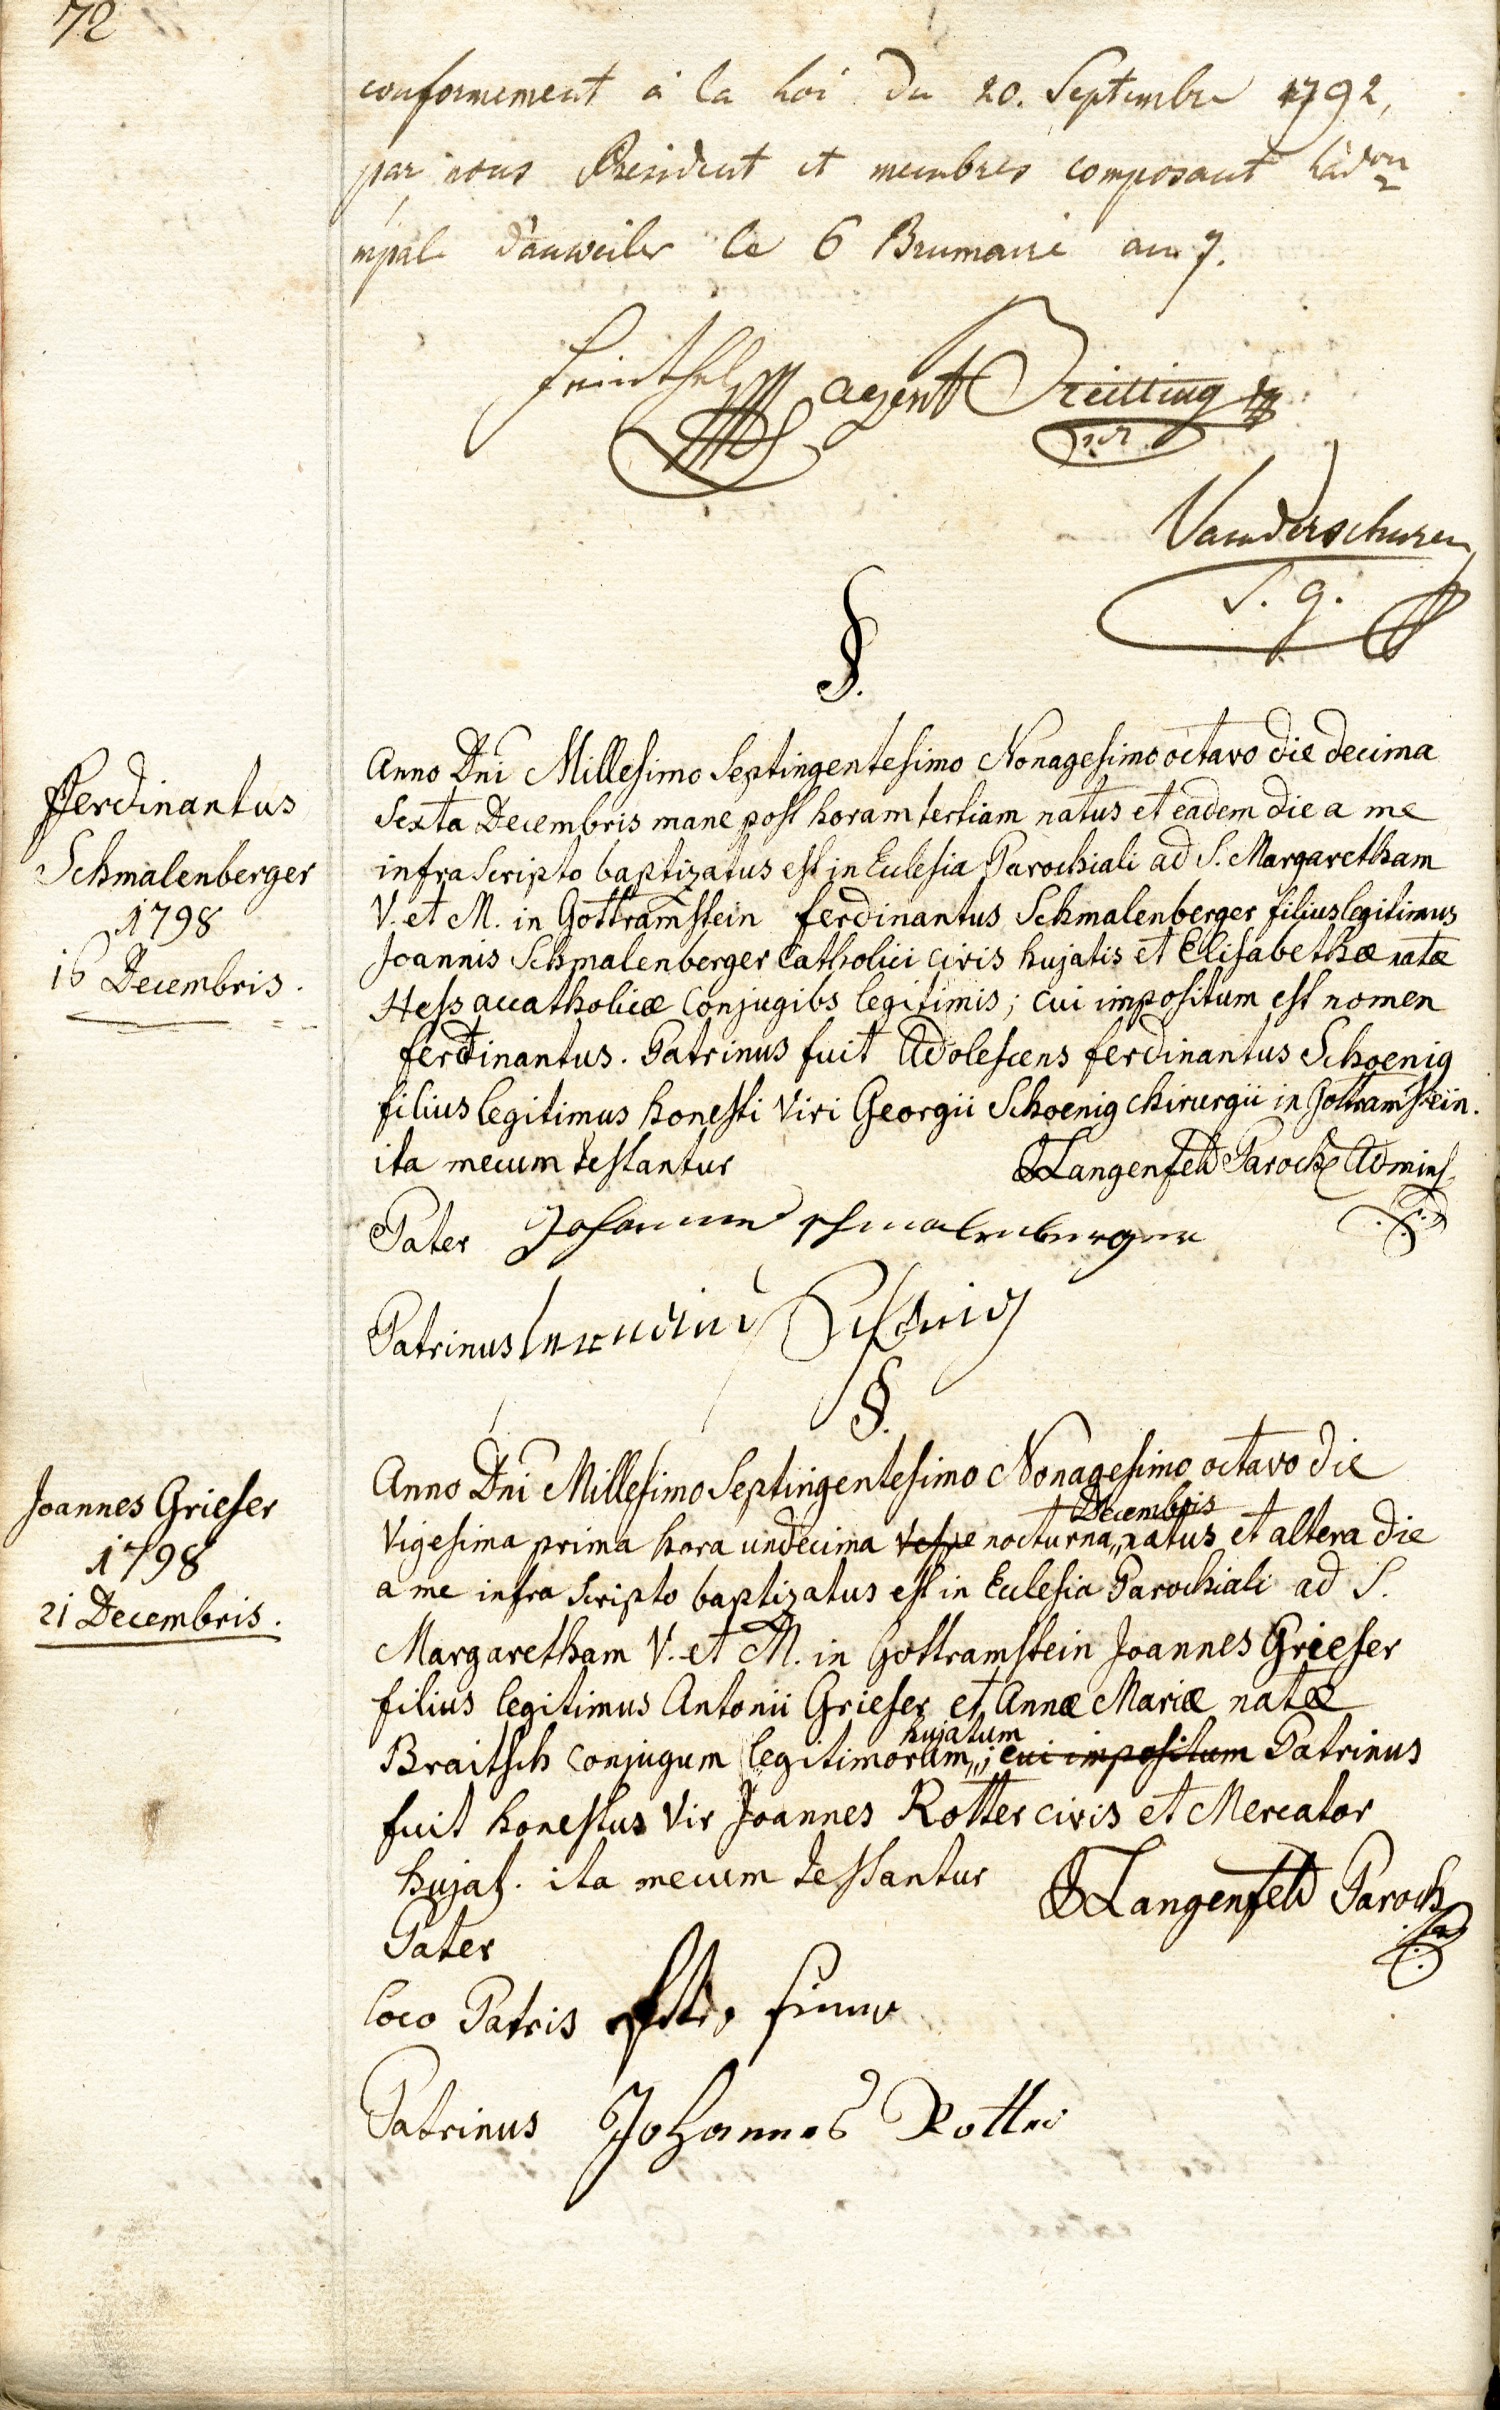 72
conformement à la Loi du 20. Septembre 1792,
par nous President et membres composant l'adon
mpale d'anweiler le 6 Brumaire an 7.
agent
Vanderschuren
S. g.
§.
Ferdinantus
Schmalenberger
1798
16 Decembris.
Anno Dni Millesimo Septingentesimo Nonagesimo octavo die decima
Sexta Decembris mane post horam tertiam natus et eadem die a me
infra Scripto baptizatus est in Eclesia Parochiali ad S. Margaretham
V. et M. in Gottramstein ferdinantus Schmalenberger filius legitimus
Joannis Schmalenberger Catholici civis hujatis et Elisabethæ natæ
Hess accatholicæ Conjugibs legitimis; cui impositum est nomen
ferdinantus. Patrinus fuit Adolescens ferdinantus Schoenig
filius legitimus honesti Viri Georgii Schoenig chirurgii in Gottramstein.
ita mecum testantur Langenfeld Paroch Admins
Pater Johannes schmalenberger
Patrinus
§.
Joannes Grieser
1798
21 Decembris.
Anno Dni Millesimo Septingentesimo Nonagesimo octavo die
Decembris
Vigesima prima hora undecima vespe nocturna,, natus et altera die
a me infra Scripto baptizatus est in Eclesia Parochiali ad S.
Margaretham V. et M. in Gottramstein Joannes Grieser
filius legitimus Antonii Grieser et Annæ Mariæ natæ
hujatum
Braitsch Conjugum legitimorum,,; cui impositum Patrinus
fuit honestus Vir Joannes Rotter civis et Mercator
hujat. ita mecum testantur Langenfeld Paroch
Pater
loco Patris
Patrinus Johannes Rotter